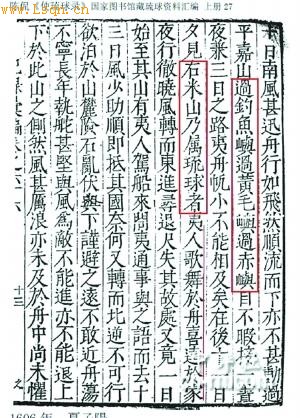 陈侃《使琉球录》国家图书馆藏琉球资料汇编 上册 27
十日南風甚迅舟行如飛然順流而下亦不甚動過
平嘉山過釣魚嶼過黃毛嶼過赤嶼目不暇接一晝
夜兼三日之路夷舟帆小不能相及矣在後十一日
夕見古米山乃屬琉球者夷人歌舞於舟喜達於家
夜行徹曉風轉而東進尋退尺失其故處又竟一日
始至其山有夷人駕船來問夷通事與之語而去十
三日風少助順即抵其國奈何又轉而北逆不可行
欲泊於山麓險石亂伏於下謹避之遠不敢近舟蕩
不寧長年執舵甚堅與風為敵不能進亦不能退上
下於此山之側然風甚厲浪亦未及於舟中尚未懼
十三
1606年